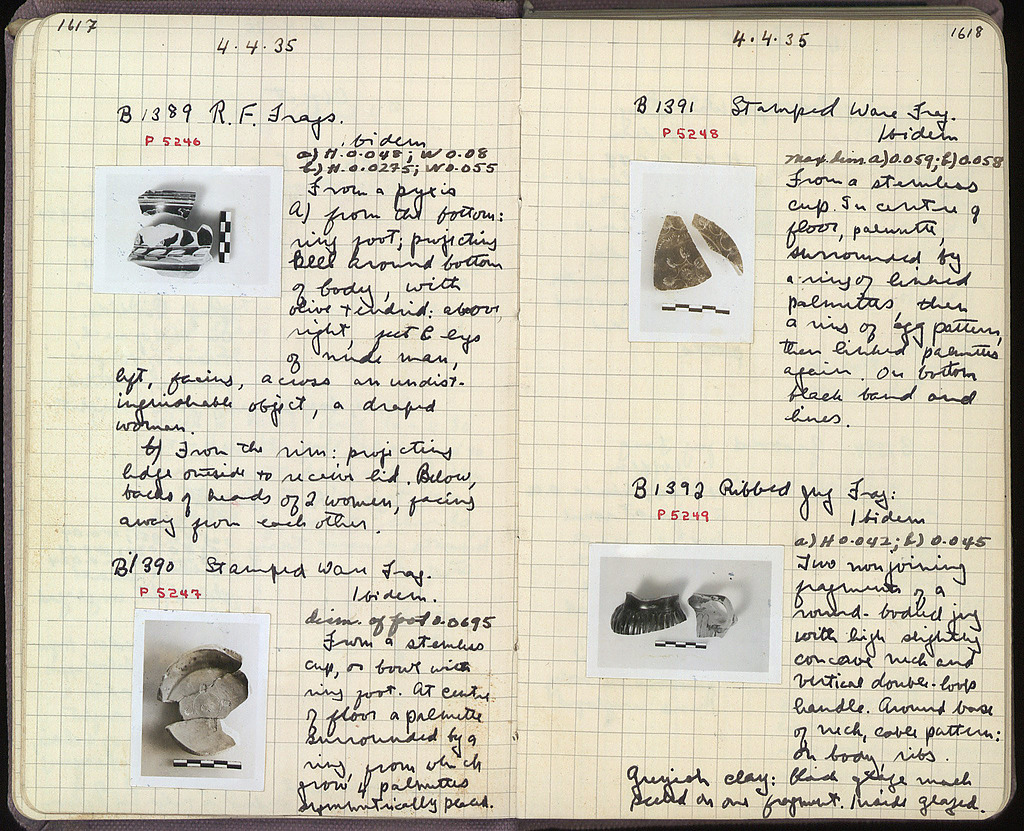 1617
4·4·35
B 1389 R. F. Frags.
P 5246
Ibidem
a) H. 0.048; W 0.08
b) H. 0.0275; W 0.055
From a pyxis
A) from the bottom:
ring foot; projecting
reel around bottom
of body, with
olive tendril: above,
right, feet & legs
of nude man,
left, facing, across an undist-
inguishable object, a draped
woman.
b) From the rim: projecting
ledge outside to receive lid. Below,
backs of heads of 2 women, facing
away from each other.
B 1390 Stamped Ware Frag.
P 5247
Ibidem.
diam. of foot 0.0695
From a stemless
cup, or bowl with
ring foot. At centre
of floor a palmette
surrounded by a
ring, from which
grow 4 palmettes
symmetrically placed.
1618
4·4·35
B 1391 Stamped Ware Frag.
P 5248
Ibidem
max. dim. a) 0.059; b) 0.058
From a stemless
cup. In centre of
floor, palmette,
surrounded by
a ring of linked
palmettes, then
a ring of egg pattern,
then linked palmettes
again. On bottom
black band and
lines.
B 1392 Ribbed Jug Frag:
P 5249
Ibidem
a) H 0.042; b) 0.045
Two non joining
fragments of a
round-bodied jug
with high slightly
concave neck and
vertical double-loop
handle. Around base
of neck, cable pattern:
on body, ribs.
Greyish clay: black glaze much
peeled on one fragment. Inside glazed.